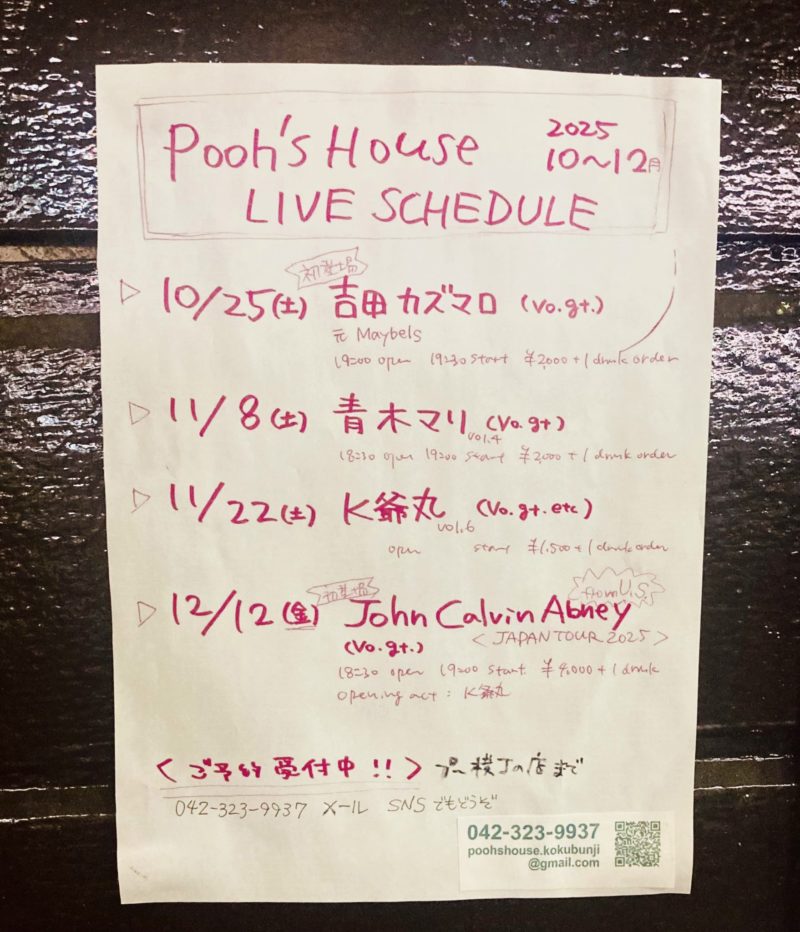 Pooh's House
2025
10～12月
LIVE SCHEDULE
初登場
▷ 10/25(土) 吉田カズマロ (Vo.gt.)
元 Maybels
19:00 open 19:30 start ¥2,000+1drink order
▷ 11/8(土) 青木マリ (Vo.gt)
vol.4
18:30 open 19:00 start ¥2,000+1drink order
▷ 11/22(土) K爺丸 (Vo.gt.etc)
vol.6
open start ¥1,500+1drink order
初登場 from U.S.
▷ 12/12(金) John Calvin Abney
(Vo.gt.) <JAPAN TOUR 2025>
18:30 open 19:00 start ¥4,000+1drink
opening act : K爺丸
<ご予約受付中!!> プー横丁の店まで
042-323-9937 メール SNSでもどうぞ
042-323-9937
poohshouse.kokubunji
@gmail.com